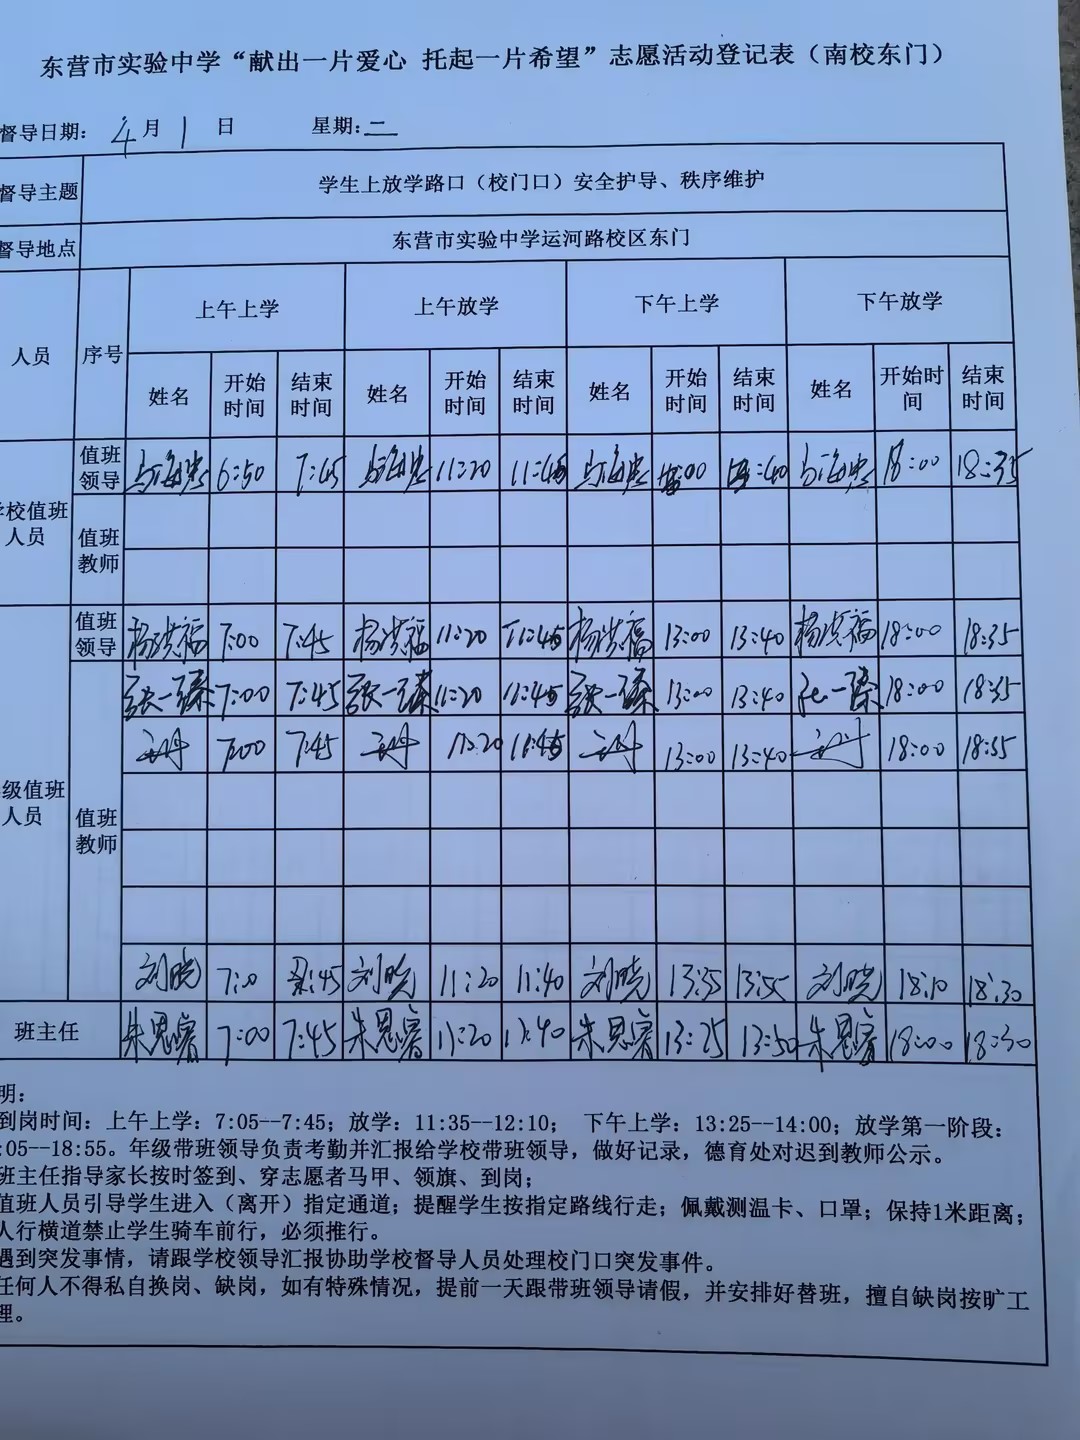 东营市实验中学“献出一片爱心 托起一片希望”志愿活动登记表（南校东门）
督导日期： 4月 1 日 星期：二
督导主题 学生上放学路口（校门口）安全护导、秩序维护
督导地点 东营市实验中学运河路校区东门
人员 序号 上午上学 上午放学 下午上学 下午放学
姓名 开始时间 结束时间 姓名 开始时间 结束时间 姓名 开始时间 结束时间 姓名 开始时间 结束时间
学校值班人员 值班领导 6:50 7:45 11:20 11:45 18:00 18:35
值班教师
值班领导 杨洪福 7:00 7:45 杨洪福 11:20 11:45 杨洪福 13:00 13:40 杨洪福 18:00 18:35
张一臻 7:00 7:45 张一臻 11:20 11:45 张一臻 13:00 13:40 张一臻 18:00 18:35
7:00 7:45 11:20 11:45 13:00 13:40 18:00 18:35
级值班人员 值班教师
刘晓 7:0 7:45 刘晓 11:20 11:40 刘晓 13:35 13:55 刘晓 18:10 18:30
班主任 朱恩睿 7:00 7:45 朱恩睿 11:20 11:40 朱恩睿 13:25 13:50 朱恩睿 18:00 18:30
明：
到岗时间：上午上学：7:05--7:45；放学：11:35--12:10； 下午上学：13:25--14:00；放学第一阶段：
:05--18:55。年级带班领导负责考勤并汇报给学校带班领导，做好记录，德育处对迟到教师公示。
班主任指导家长按时签到、穿志愿者马甲、领旗、到岗；
值班人员引导学生进入（离开）指定通道；提醒学生按指定路线行走；佩戴测温卡、口罩；保持1米距离；
人行横道禁止学生骑车前行，必须推行。
遇到突发事情，请跟学校领导汇报协助学校督导人员处理校门口突发事件。
任何人不得私自换岗、缺岗，如有特殊情况，提前一天跟带班领导请假，并安排好替班，擅自缺岗按旷工
理。